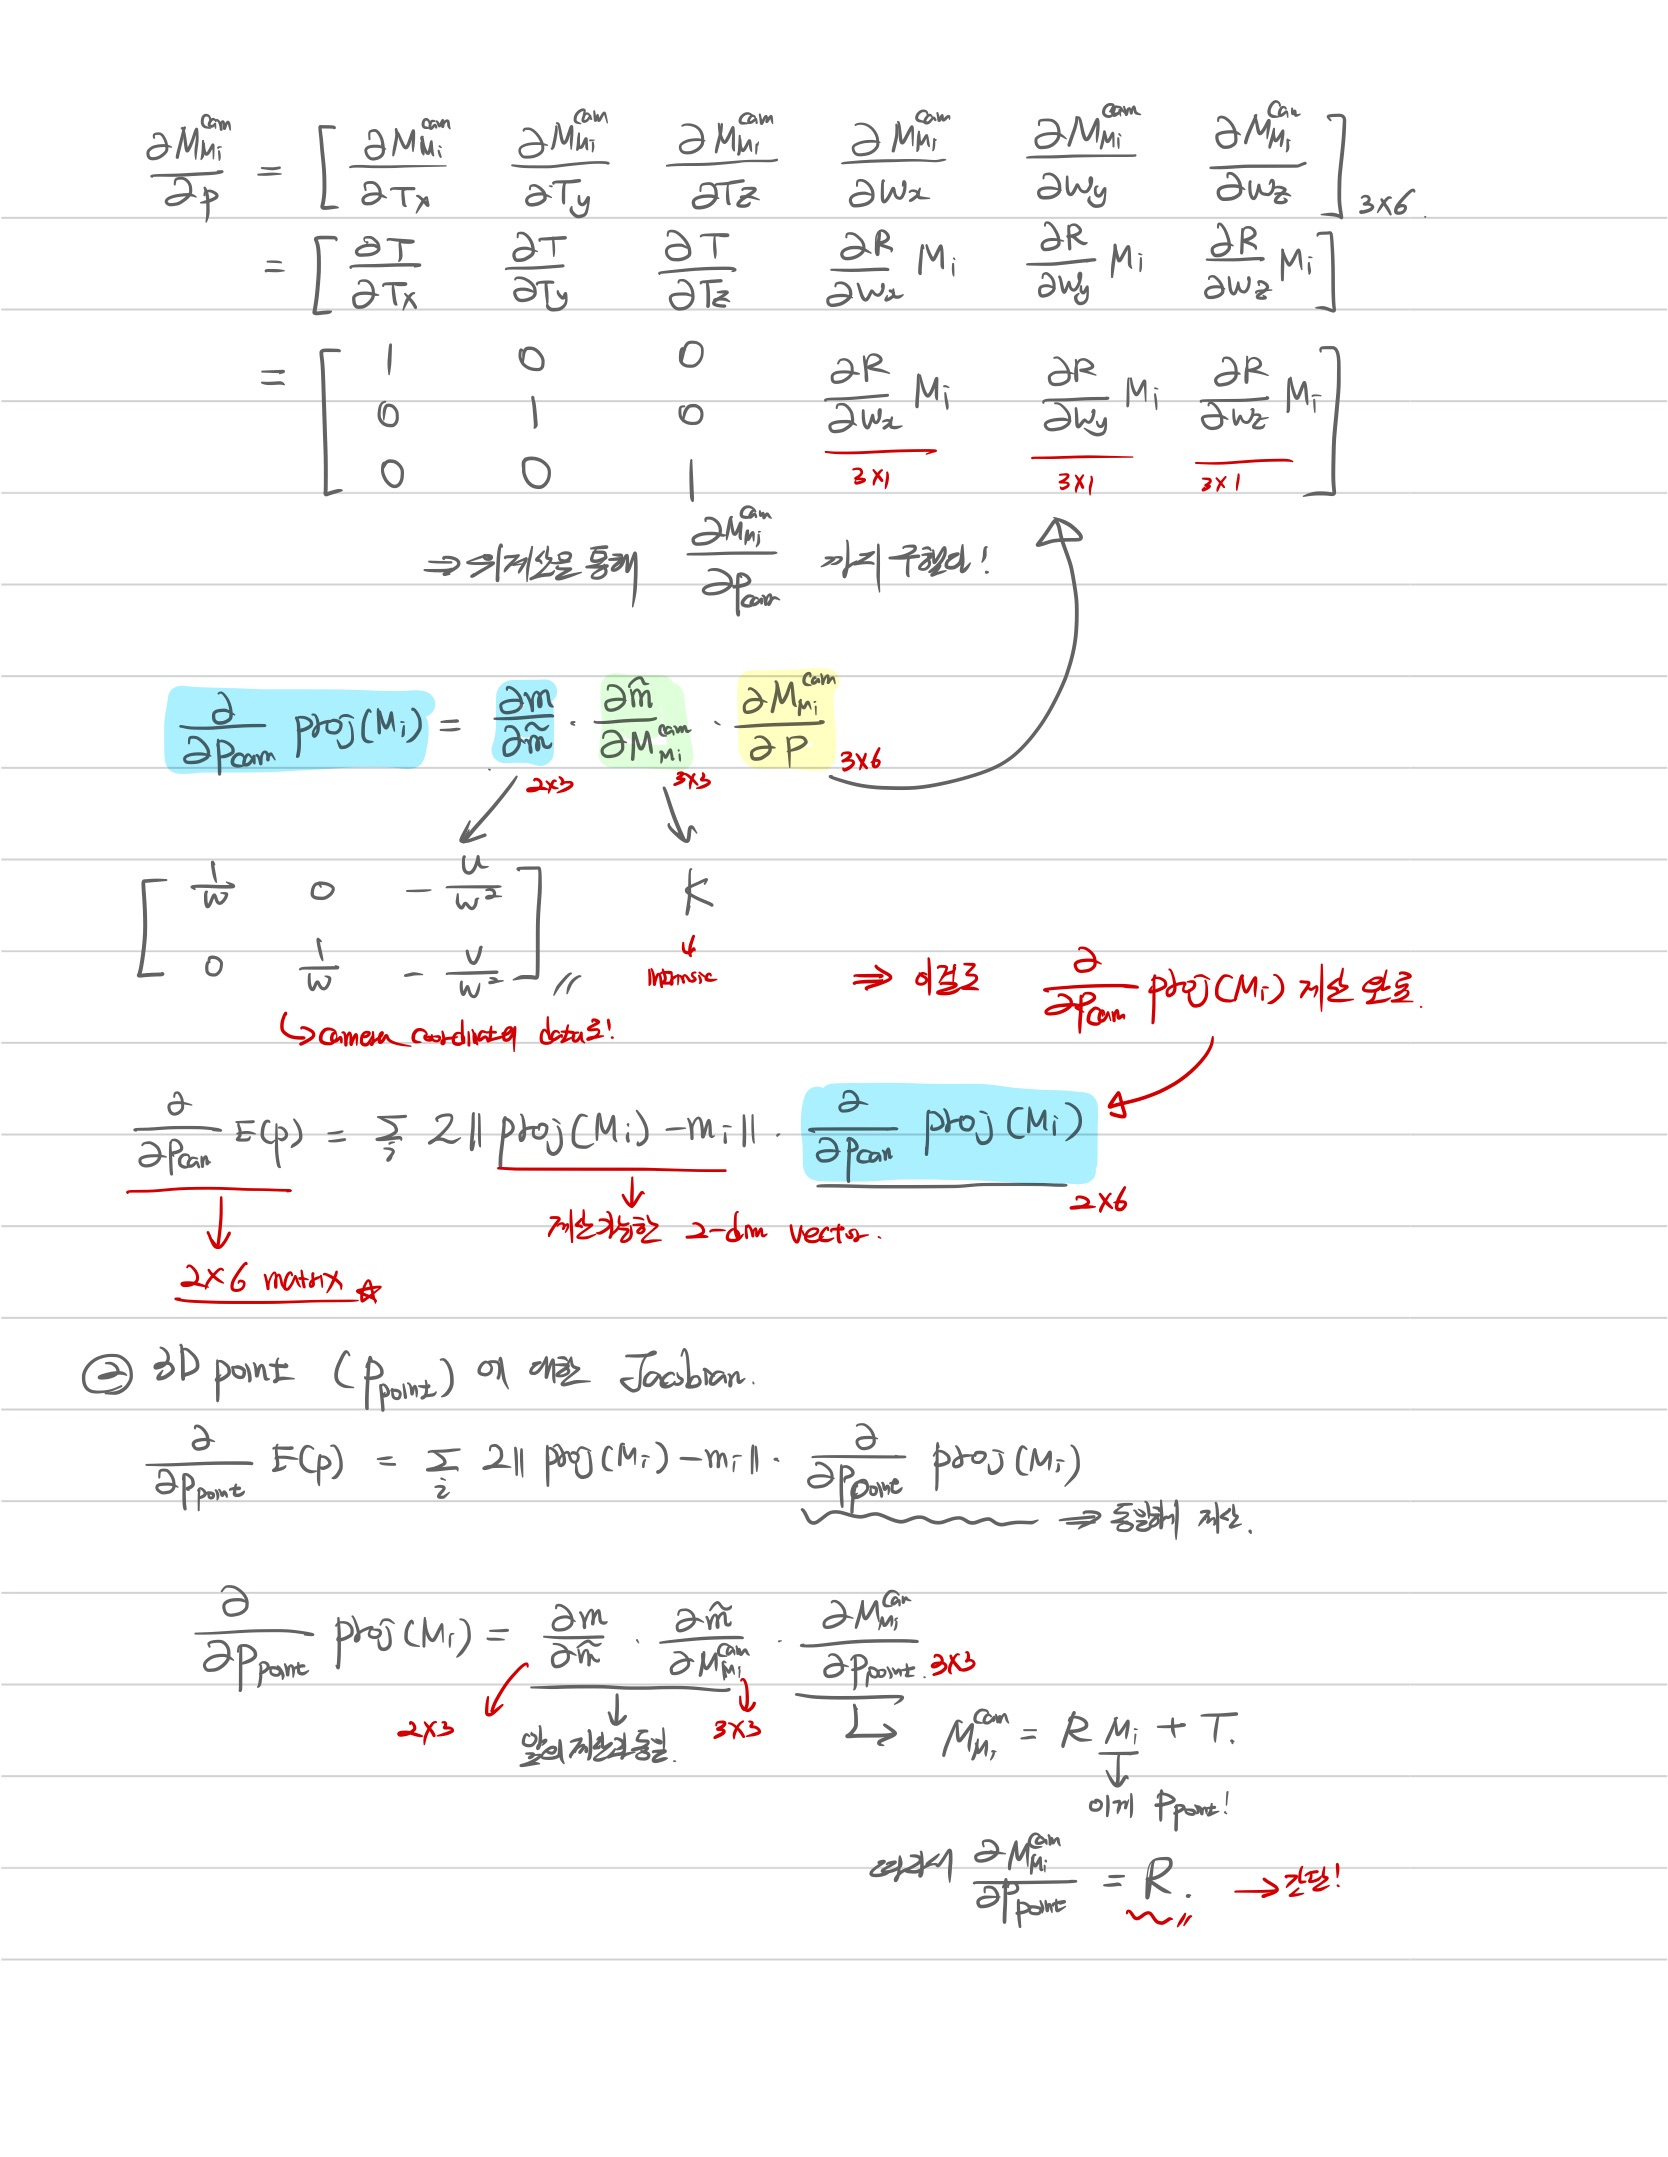 ∂M_{Mi}^{cam}/∂p = [ ∂M_{Mi}^{cam}/∂Tx ∂M_{Mi}^{cam}/∂Ty ∂M_{Mi}^{cam}/∂Tz ∂M_{Mi}^{cam}/∂wx ∂M_{Mi}^{cam}/∂wy ∂M_{Mi}^{cam}/∂wz ] 3×6.
= [ ∂T/∂Tx ∂T/∂Ty ∂T/∂Tz ∂R/∂wx Mi ∂R/∂wy Mi ∂R/∂wz Mi ]
= [ 1 0 0 ∂R/∂wx Mi ∂R/∂wy Mi ∂R/∂wz Mi ]
0 1 0
0 0 1
3×1 3×1 3×1
⇒ 위 계산을 통해 ∂M_{Mi}^{cam}/∂p_{cam} 까지 구했다!
∂/∂p_{cam} proj(Mi) = ∂m/∂m̃ · ∂m̃/∂M_{Mi}^{cam} · ∂M_{Mi}^{cam}/∂p
2×3 3×3 3×6
[ 1/w 0 -u/w² K
0 1/w -v/w² ] //
Intrinsic
⇒ 이걸로 ∂/∂p_{cam} proj(Mi) 계산 완료.
↳ camera coordinate의 data로!
∂/∂p_{cam} E(p) = Σ_i 2‖proj(Mi) - mi‖ · ∂/∂p_{cam} proj(Mi)
2×6
계산가능한 2-dim vector.
2×6 matrix ☆
② 3D point (p_{point}) 에 대한 Jacobian.
∂/∂p_{point} E(p) = Σ_i 2‖proj(Mi) - mi‖ · ∂/∂p_{point} proj(Mi)
⇒ 동일하게 계산.
∂/∂p_{point} proj(Mi) = ∂m/∂m̃ · ∂m̃/∂M_{Mi}^{cam} · ∂M_{Mi}^{cam}/∂p_{point} 3×3
2×3 3×3
앞의 계산과 동일.
M_{Mi}^{cam} = R Mi + T.
이게 p_{point}!
따라서 ∂M_{Mi}^{cam}/∂p_{point} = R. → 간단!